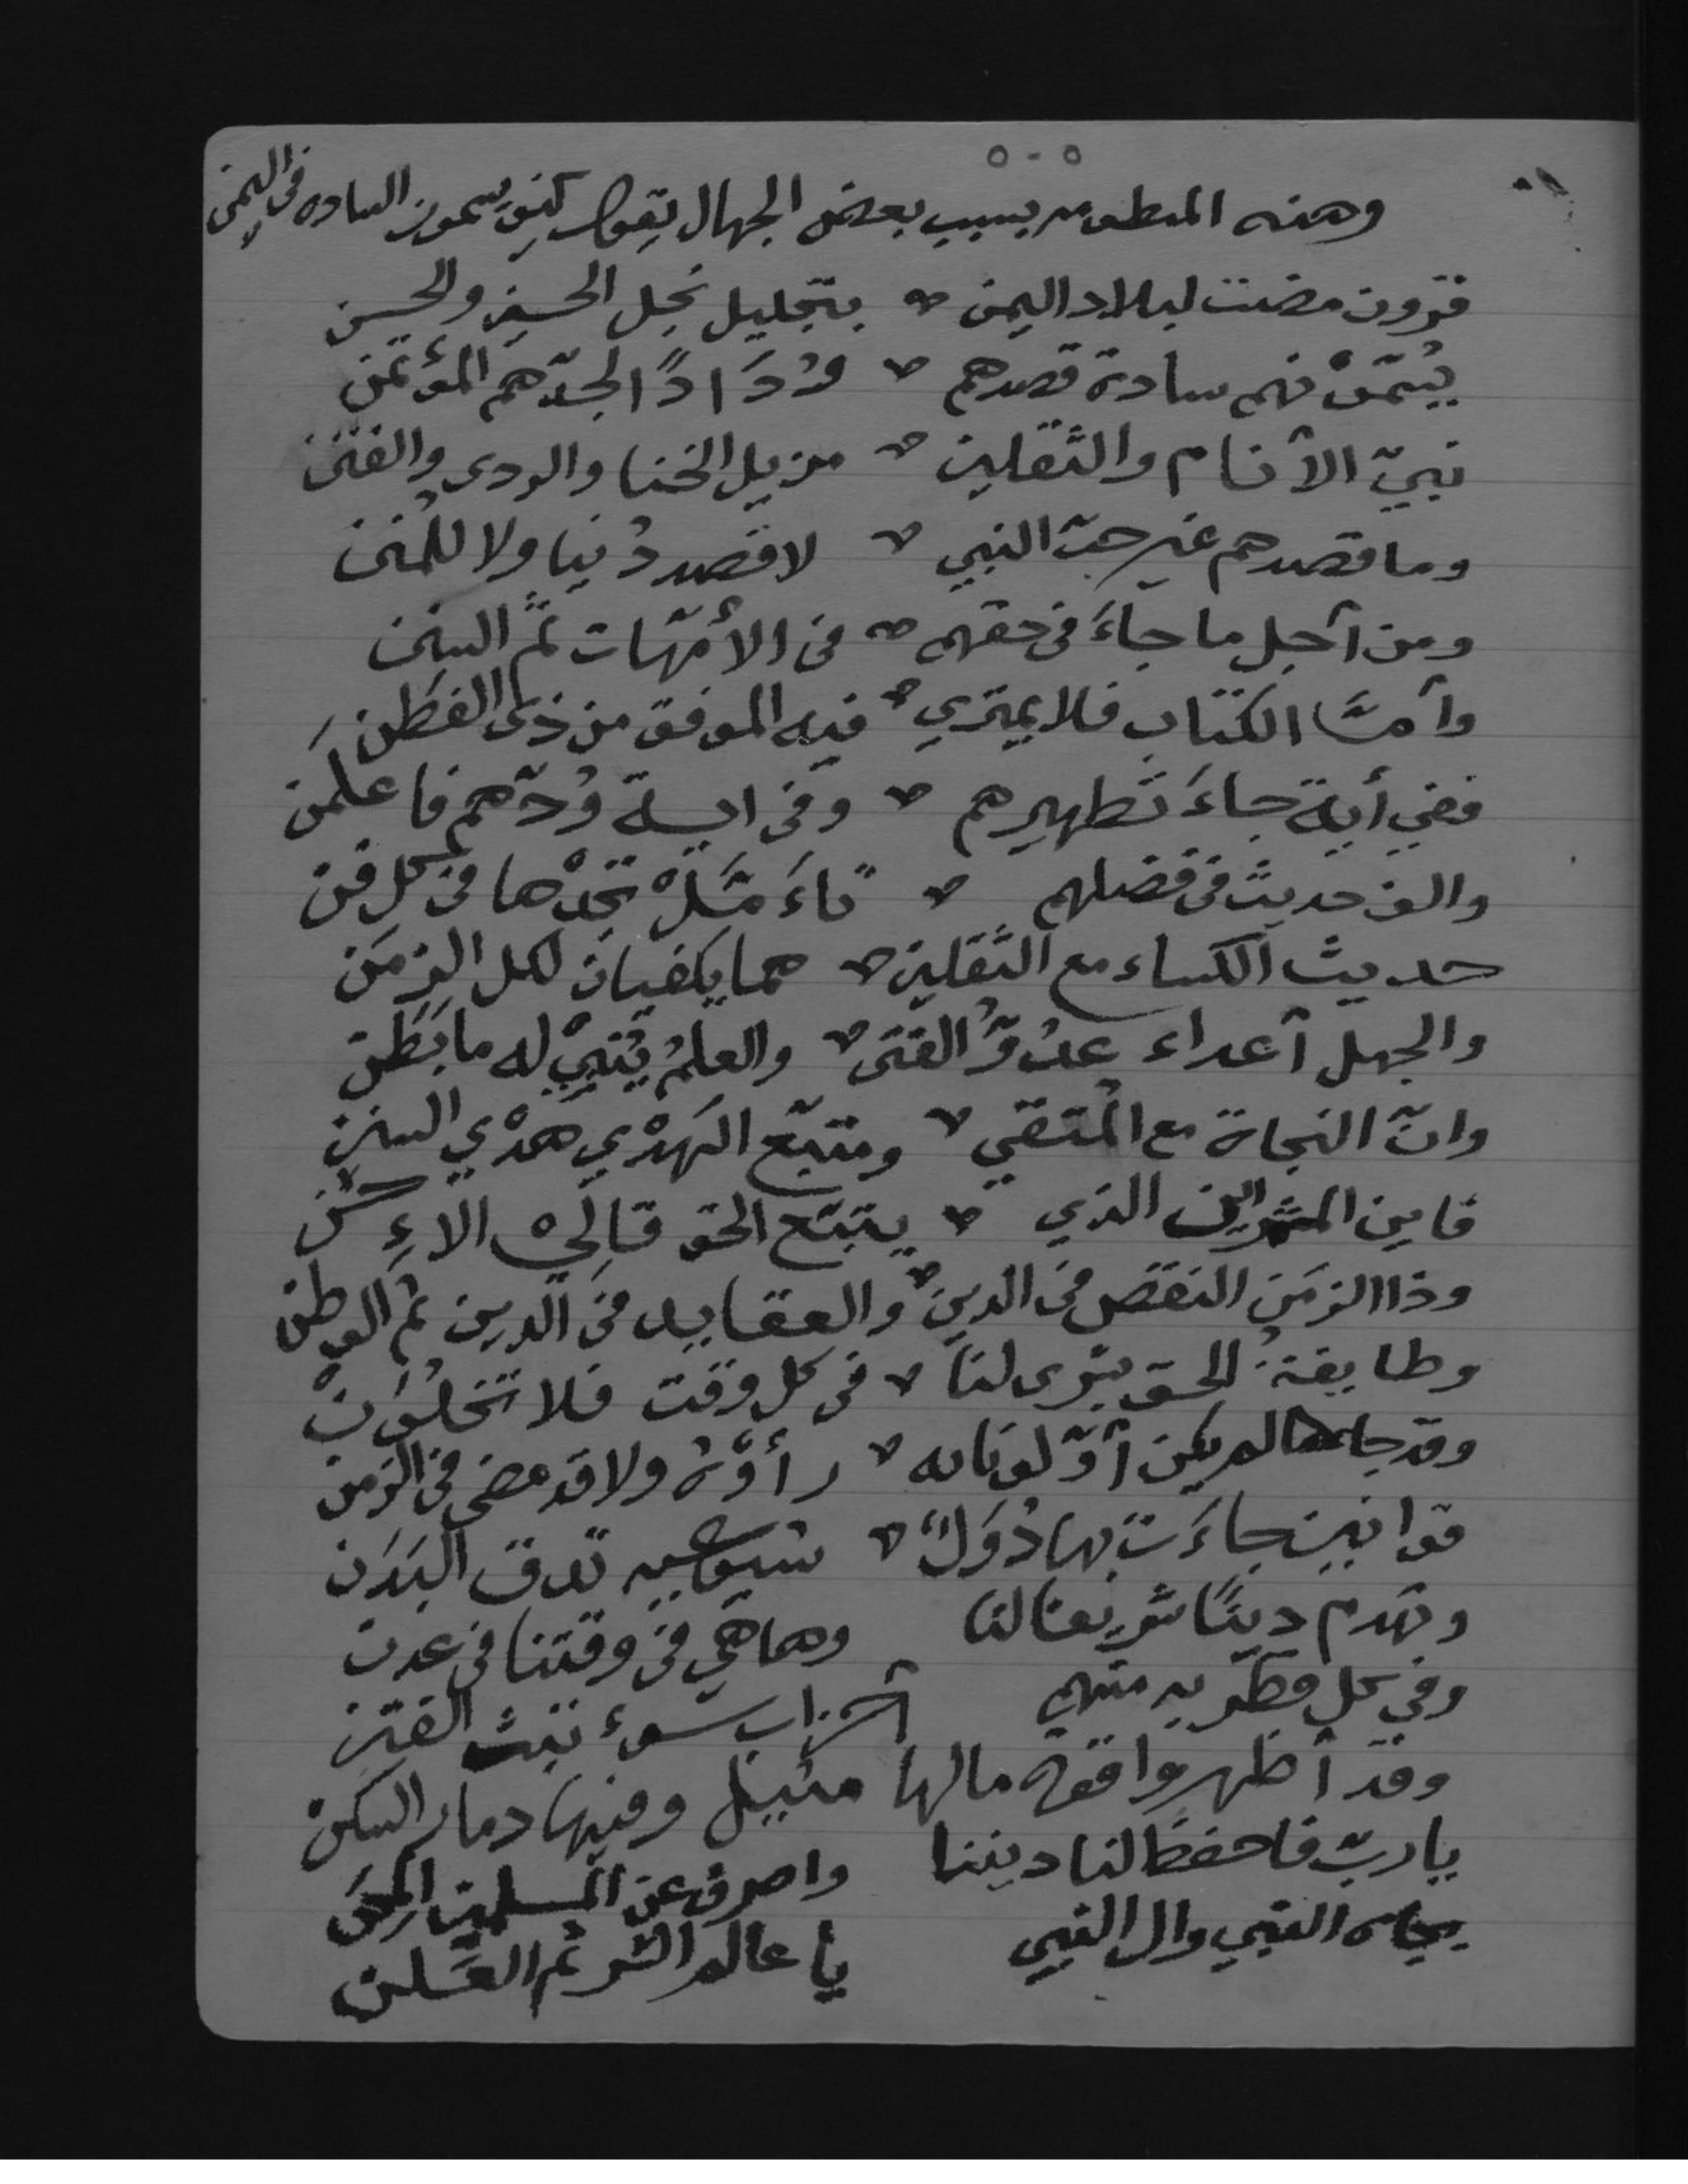 وهذه المنظومه بسبب بعض الجهال يقول كيف يسمون الساده في اليمن
قرون مضت لبلاد اليمن بتجليل نجل الحسين والحسن
يسمّون فهم سادة قصدهم وُدَادًا لجدّهم المؤتمن
نبيّ الأنام والثقلين مزيل الخنا والردى والفتن
وما قصدهم غير حبّ النبي لا قصد دُنيا ولا للمنن
ومن أجل ما جاءَ في حقهم في الأمّهات ثمّ السنن
وأمّا الكتاب فلا يمتري فيه الموفق من ذوي الفطن
ففي أية جاءَ تطهيرهم وفي اية وُدّهم فاعلمن
والف حديث في فضلهم تجدْها في كل فن
حديث الكساء مع الثقلين هما يكفيان لكل الزمَن
والجهل أعداء عدُوّ الفتى والعلمُ يُنبيْ له ما بَطَن
وانّ النجاة مع المتقي ومتبّع الهدْي هدْي السنن
فاين الذي يتبّع الحق
وذا الزمَن النقص في الدين والعقايد في الدين ثم الوطن
وطايفةُ الحق يتوى لنا في كل وقت فلا تخلُوَنْ
وقد جاءها لم يكن أوّلونا له رأوْهُ ولا قد مضى في الزمن
قوانين جاءَت بها دُوَلٌ شيوعيه تدق البدَن
وتهدم دينًا شريفا لنا وها هي في وقتنا في عدن
وفي كل قطر به منهم أحزاب سوءٍ تبث الفتن
وقد أظهروا قوة ما لها مثيل وفيها دمار السكن
يا ربّ فاحفظ لنا ديننا واصرف عن المسلمين المحَن
بجاه النبي وال النبي يا عالم السر ثم العَلن